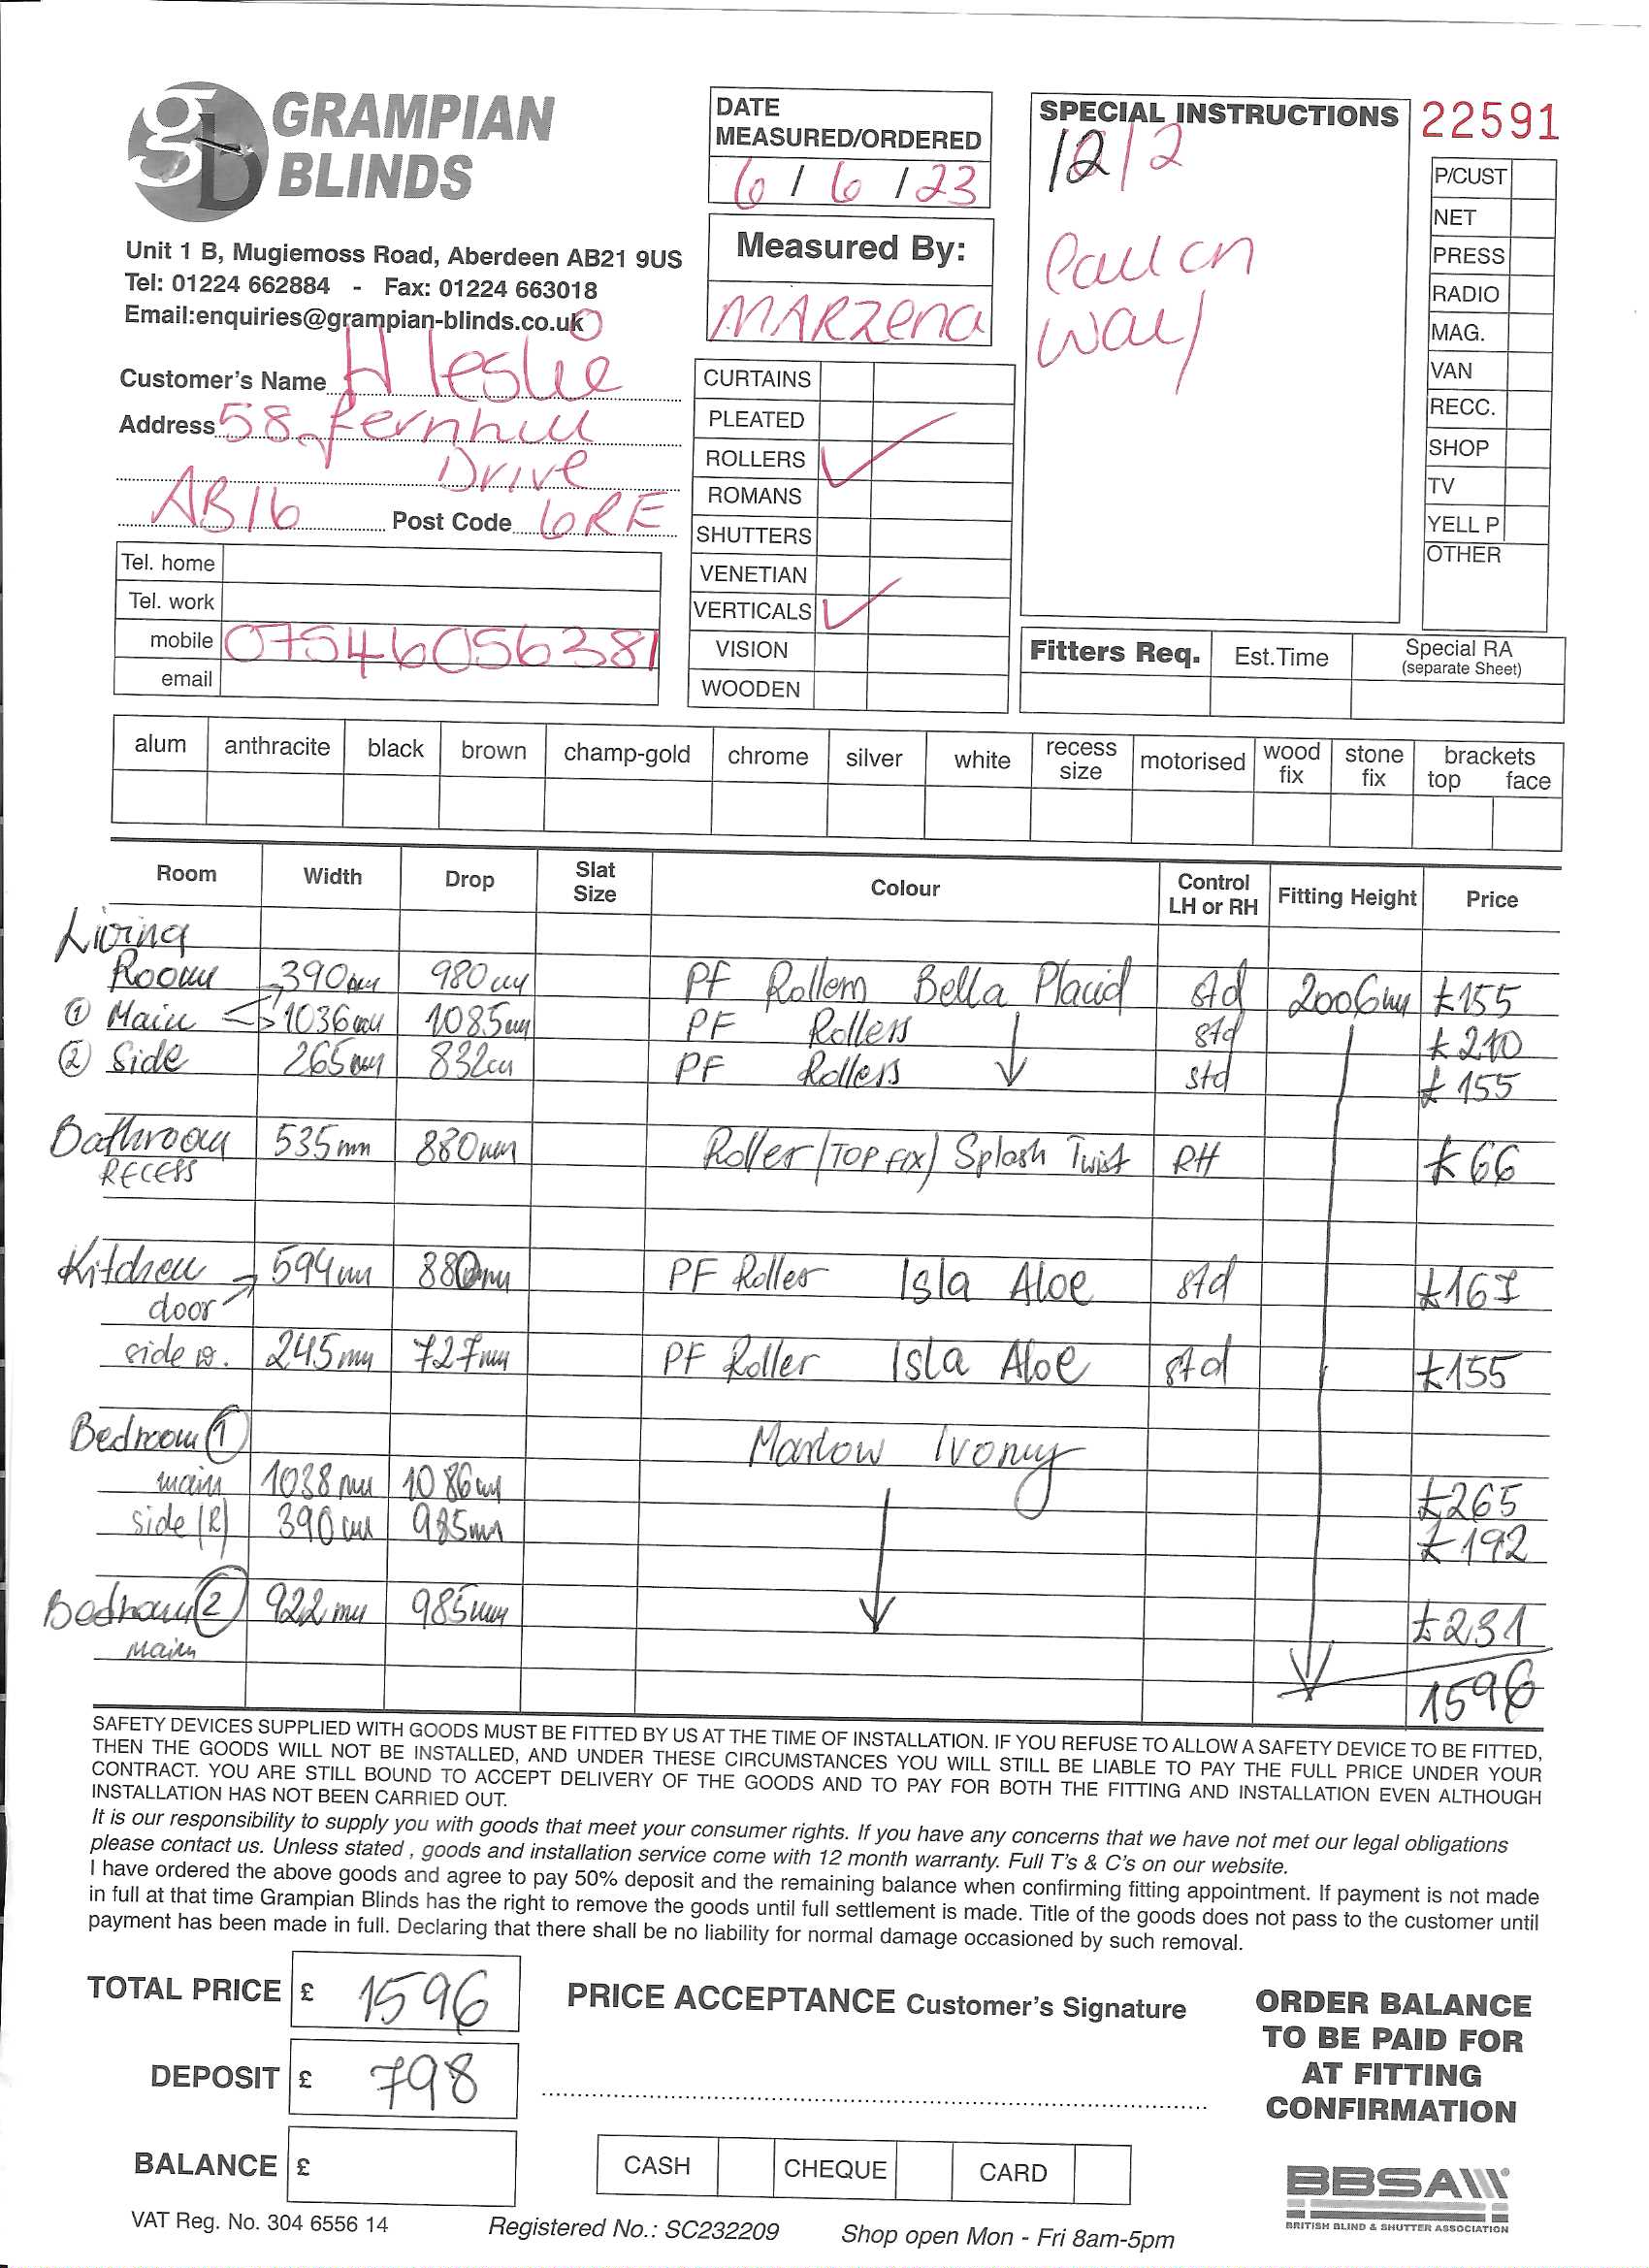 GRAMPIAN
BLINDS
Unit 1 B, Mugiemoss Road, Aberdeen AB21 9US
Tel: 01224 662884 - Fax: 01224 663018
Email:enquiries@grampian-blinds.co.uk
Customer's Name H Leslie
Address 58 Fernhill
Drive
AB16 Post Code 6RE
Tel. home
Tel. work
mobile 07546056381
email
DATE
MEASURED/ORDERED
6 / 6 / 23
Measured By:
MARZena
CURTAINS
PLEATED
ROLLERS ✓
ROMANS
SHUTTERS
VENETIAN
VERTICALS ✓
VISION
WOODEN
SPECIAL INSTRUCTIONS
12/2
Call on
way
22591
P/CUST
NET
PRESS
RADIO
MAG.
VAN
RECC.
SHOP
TV
YELL P
OTHER
Fitters Req. Est.Time Special RA
(separate Sheet)
alum anthracite black brown champ-gold chrome silver white recess size motorised wood fix stone fix brackets top face
Room Width Drop Slat Size Colour Control LH or RH Fitting Height Price
Living
Room 390mm 980mm PF Rollers Bella Placid std 2006mm £155
① Main 1036mm 1085mm PF Rollers std £210
② Side 265mm 832mm PF Rollers std £155
Bathroom 535mm 880mm Roller/TOP FIX/ Splash Twist RH £66
RECESS
Kitchen 594mm 880mm PF Roller Isla Aloe std £167
door
side w. 245mm 727mm PF Roller Isla Aloe std £155
Bedroom ① Marlow Ivory
main 1038mm 1086mm £265
side (R) 390mm 985mm £192
Bedroom ② 922mm 985mm £231
Main
1596
SAFETY DEVICES SUPPLIED WITH GOODS MUST BE FITTED BY US AT THE TIME OF INSTALLATION. IF YOU REFUSE TO ALLOW A SAFETY DEVICE TO BE FITTED,
THEN THE GOODS WILL NOT BE INSTALLED, AND UNDER THESE CIRCUMSTANCES YOU WILL STILL BE LIABLE TO PAY THE FULL PRICE UNDER YOUR
CONTRACT. YOU ARE STILL BOUND TO ACCEPT DELIVERY OF THE GOODS AND TO PAY FOR BOTH THE FITTING AND INSTALLATION EVEN ALTHOUGH
INSTALLATION HAS NOT BEEN CARRIED OUT.
It is our responsibility to supply you with goods that meet your consumer rights. If you have any concerns that we have not met our legal obligations
please contact us. Unless stated , goods and installation service come with 12 month warranty. Full T's & C's on our website.
I have ordered the above goods and agree to pay 50% deposit and the remaining balance when confirming fitting appointment. If payment is not made
in full at that time Grampian Blinds has the right to remove the goods until full settlement is made. Title of the goods does not pass to the customer until
payment has been made in full. Declaring that there shall be no liability for normal damage occasioned by such removal.
TOTAL PRICE £ 1596
DEPOSIT £ 798
BALANCE £
PRICE ACCEPTANCE Customer's Signature
CASH CHEQUE CARD
ORDER BALANCE
TO BE PAID FOR
AT FITTING
CONFIRMATION
BBSA
BRITISH BLIND & SHUTTER ASSOCIATION
VAT Reg. No. 304 6556 14 Registered No.: SC232209 Shop open Mon - Fri 8am-5pm